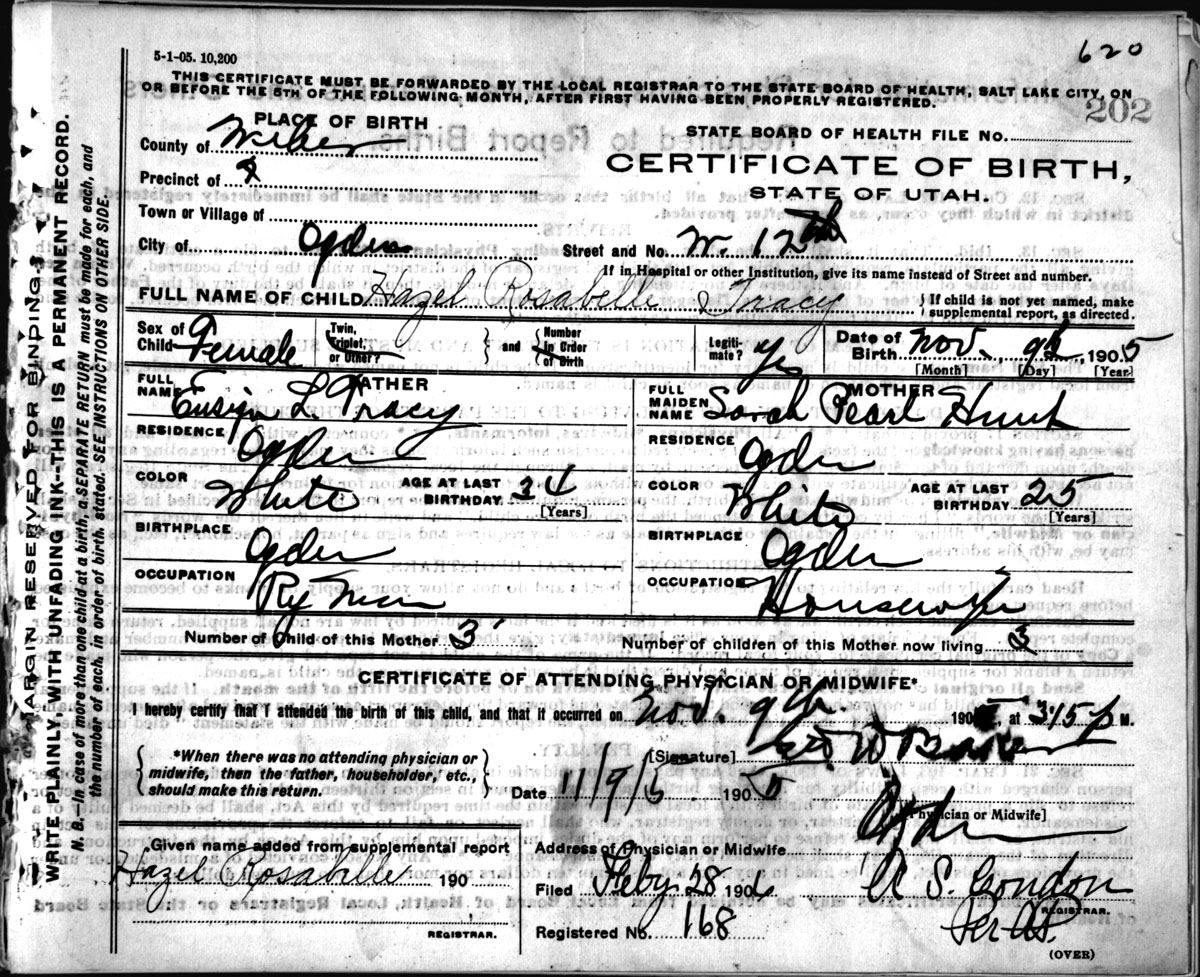 620
5-1-05. 10,200
THIS CERTIFICATE MUST BE FORWARDED BY THE LOCAL REGISTRAR TO THE STATE BOARD OF HEALTH, SALT LAKE CITY, ON
OR BEFORE THE 5TH OF THE FOLLOWING MONTH, AFTER FIRST HAVING BEEN PROPERLY REGISTERED.
202
PLACE OF BIRTH
STATE BOARD OF HEALTH FILE No.
County of Weber
CERTIFICATE OF BIRTH,
Precinct of
STATE OF UTAH.
Town or Village of
City of Ogden Street and No. W. 12th
If in Hospital or other Institution, give its name instead of Street and number.
FULL NAME OF CHILD Hazel Rosabelle Tracy { If child is not yet named, make
supplemental report, as directed.
Sex of Child Female Twin, Triplet, or Other? } and { Number in Order of Birth Legiti- mate? Yes Date of Birth Nov. 9th, 1905
[Month] [Day] [Year]
FULL NAME FATHER Ensign L Tracy
FULL MAIDEN NAME MOTHER Sarah Pearl Hunt
RESIDENCE Ogden RESIDENCE Ogden
COLOR White AGE AT LAST BIRTHDAY 34 [Years] COLOR White AGE AT LAST BIRTHDAY 25 [Years]
BIRTHPLACE Ogden BIRTHPLACE Ogden
OCCUPATION Ry Man OCCUPATION Housewife
Number of Child of this Mother 3 Number of children of this Mother now living 3
CERTIFICATE OF ATTENDING PHYSICIAN OR MIDWIFE*
I hereby certify that I attended the birth of this child, and that it occurred on Nov. 9th 190 , at 315 p M.
{ *When there was no attending physician or
midwife, then the father, householder, etc.,
should make this return. }
[Signature]
Date 11/9/5 1905
[Physician or Midwife]
Given name added from supplemental report
Address of Physician or Midwife Ogden
Hazel Rosabelle 190
Filed Feby. 28 1906 A S. Condon
REGISTRAR.
Registered No. 168 Per
REGISTRAR.
(OVER)
MARGIN RESERVED FOR BINDING.
WRITE PLAINLY, WITH UNFADING INK--THIS IS A PERMANENT RECORD.
N. B.--In case of more than one child at a birth, a SEPARATE RETURN must be made for each, and
the number of each, in order of birth, stated. SEE INSTRUCTIONS ON OTHER SIDE.